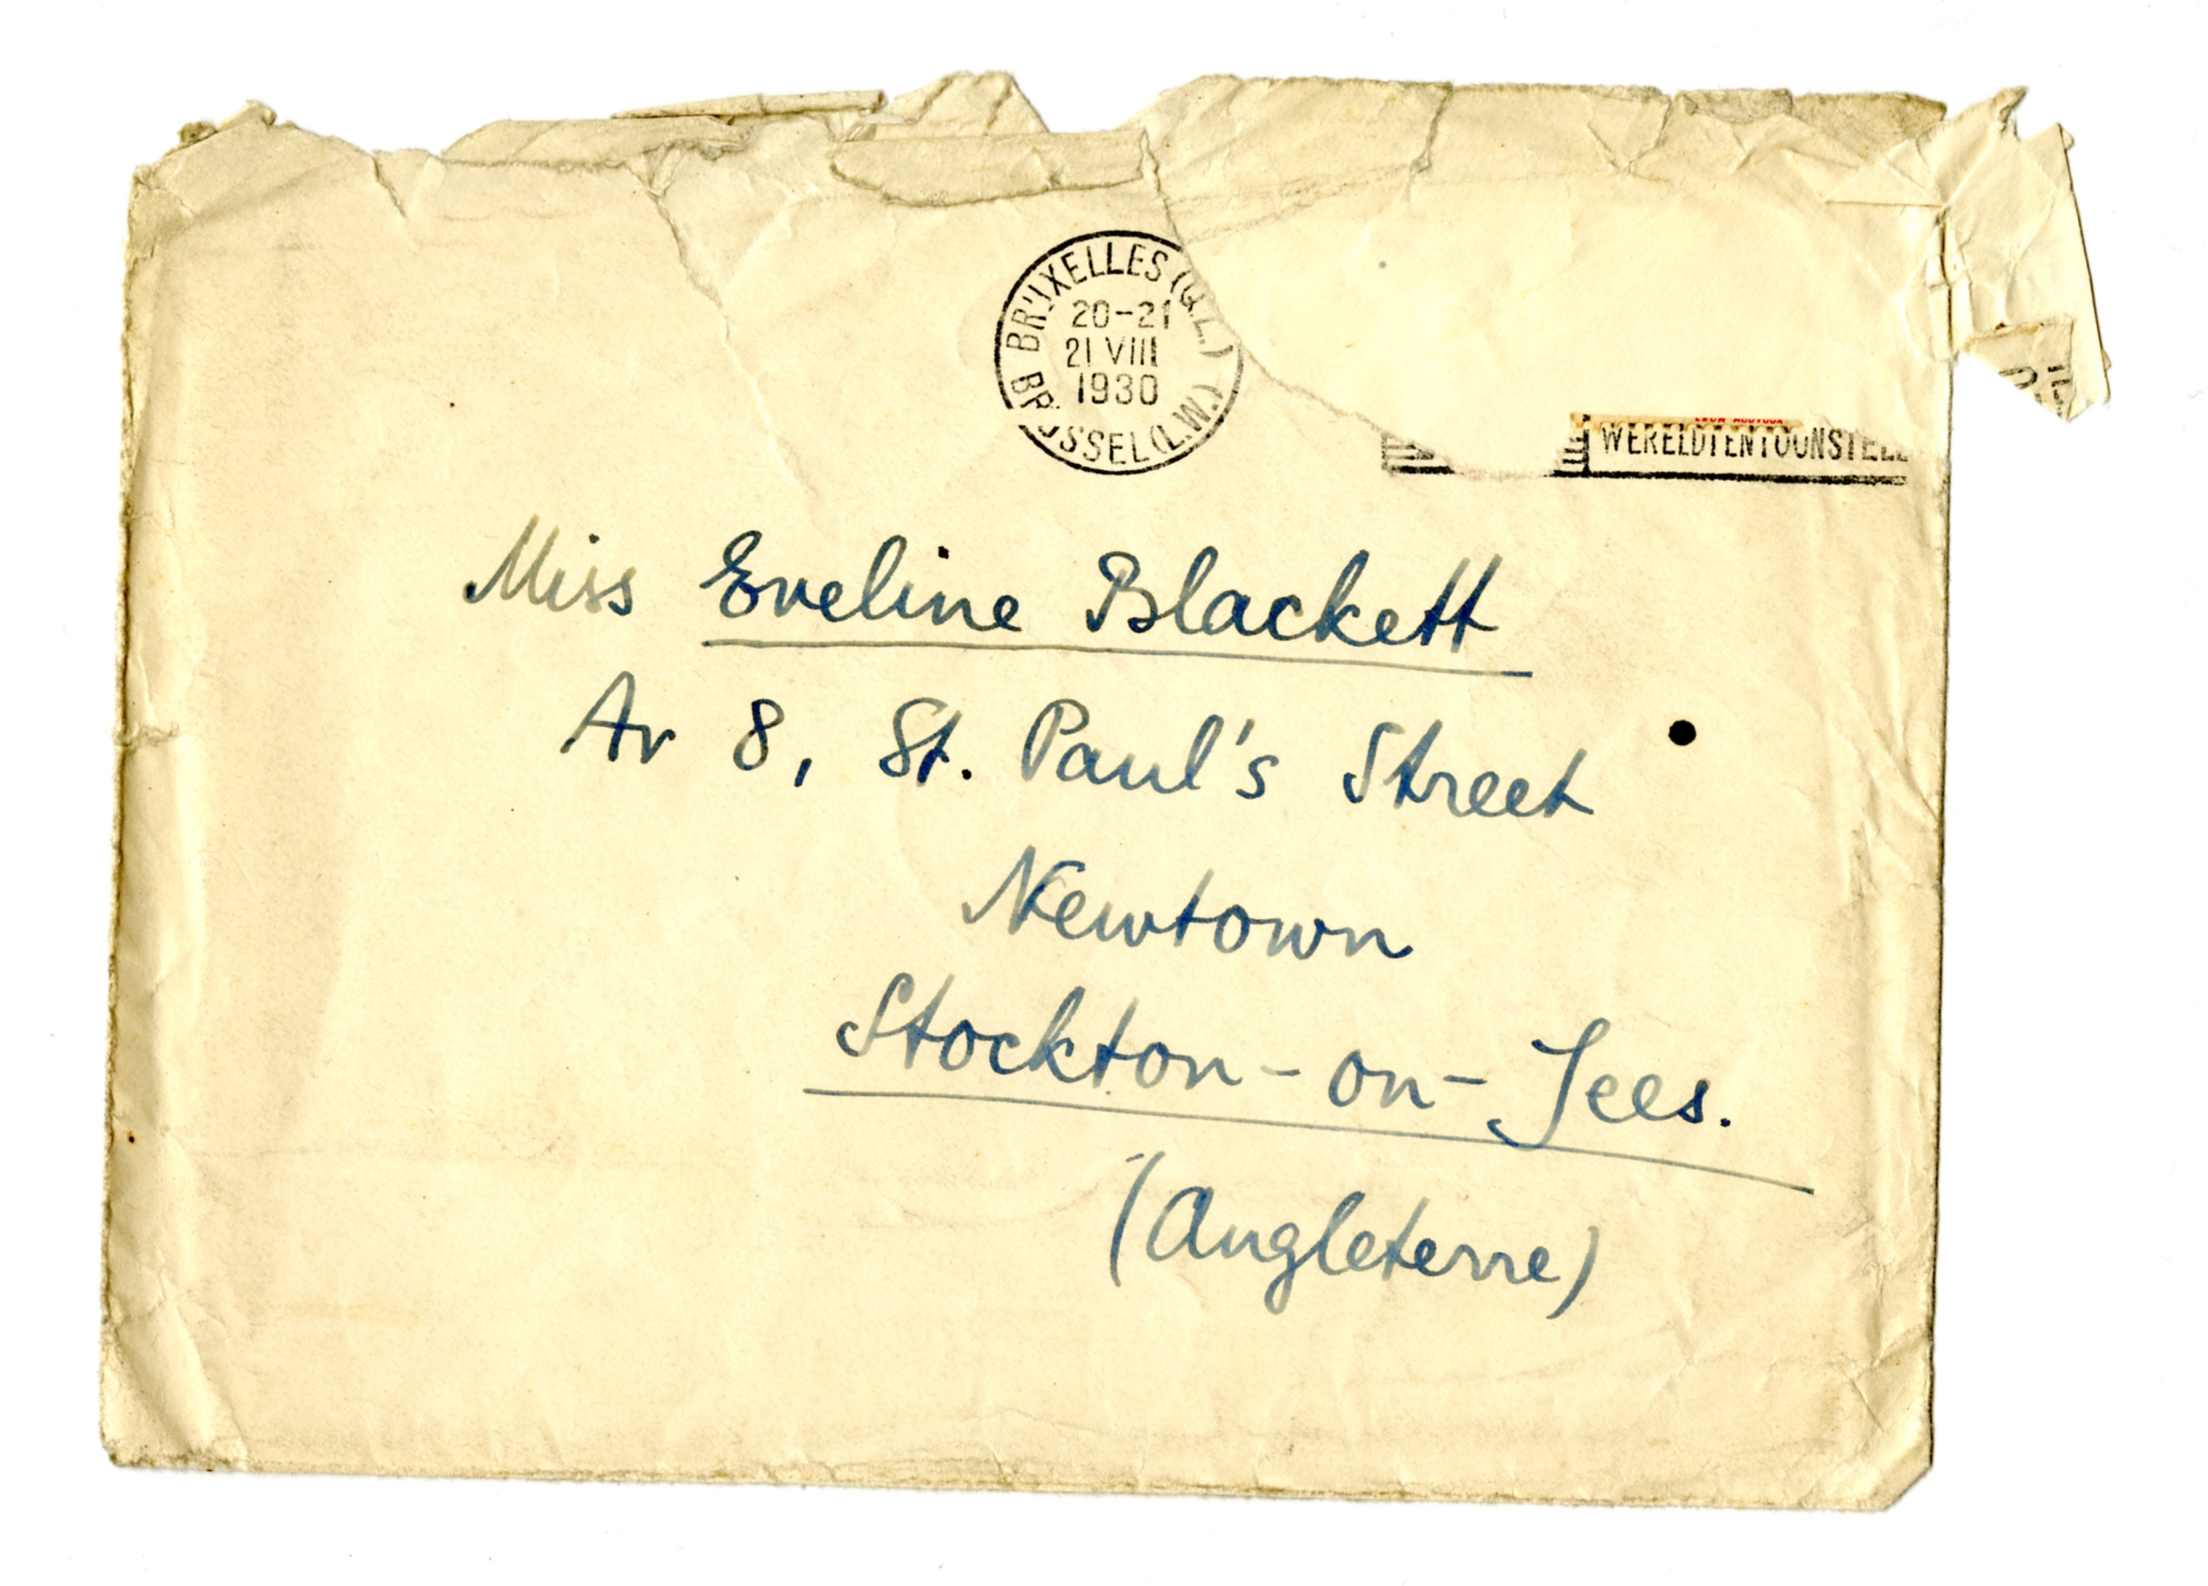 BRUXELLES (Q.L.)
20-21
21 VIII
1930
BRUSSEL (L.W.)
WERELDTENTOONSTELL
Miss Eveline Blackett
Av 8, St. Paul's Street
Newtown
Stockton-on-Tees.
(Angleterre)